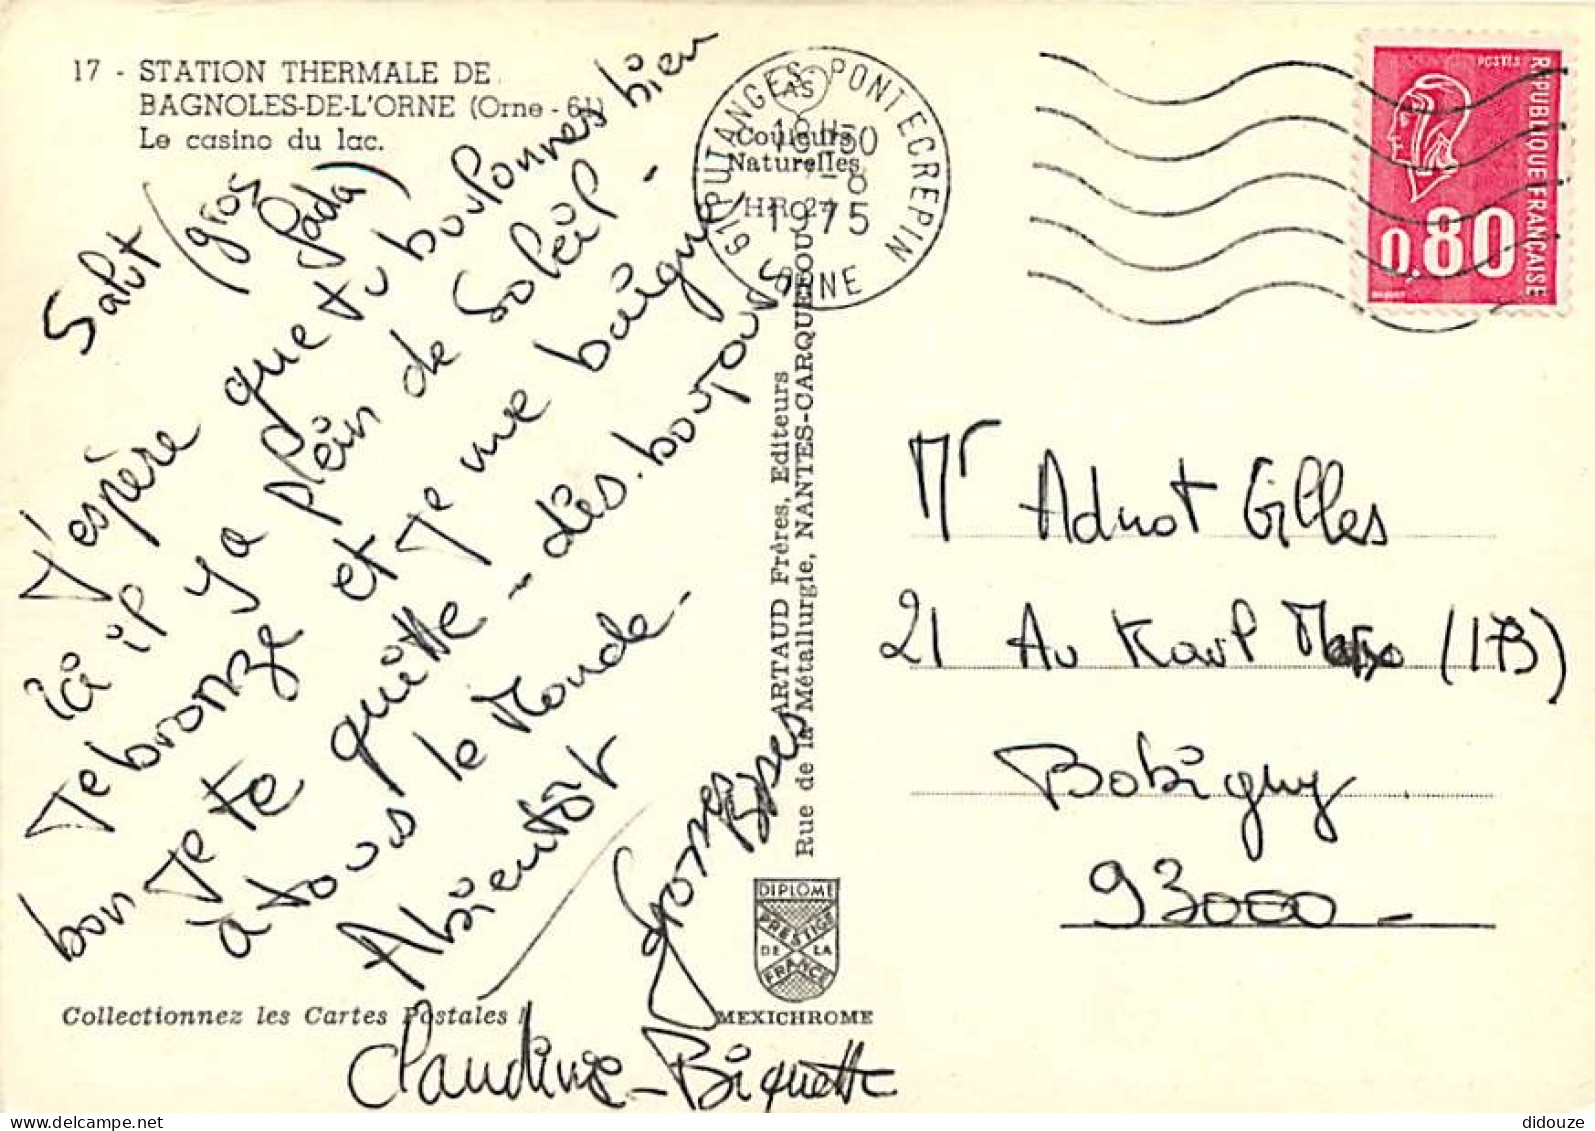 17 - STATION THERMALE DE
BAGNOLES-DE-L'ORNE (Orne - 61)
Le casino du lac.
Couleurs
Naturelles
HR 24
61 PUTANGES-PONTECREPIN
ORNE
18H50
7-8
1975
POSTES
REPUBLIQUE FRANÇAISE
0,80
Salut (gros
dada)
J'espère que tu boulonnes bien
ici il y a plein de Soleil -
Je bronze et Je me baigne
bon Je te quitte - dès. boujous
à tous le Monde -
Abientôt
grosses Bises
Claudine - Biquette
ARTAUD Frères, Editeurs
Rue de la Métallurgie, NANTES-CARQUEFOU
Mr Adnot Gilles
21 Av Karl Marx (173)
Bobigny
93000 -
DIPLOME
PRESTIGE
DE LA
FRANCE
MEXICHROME
Collectionnez les Cartes Postales !
didouze @ delcampe.net